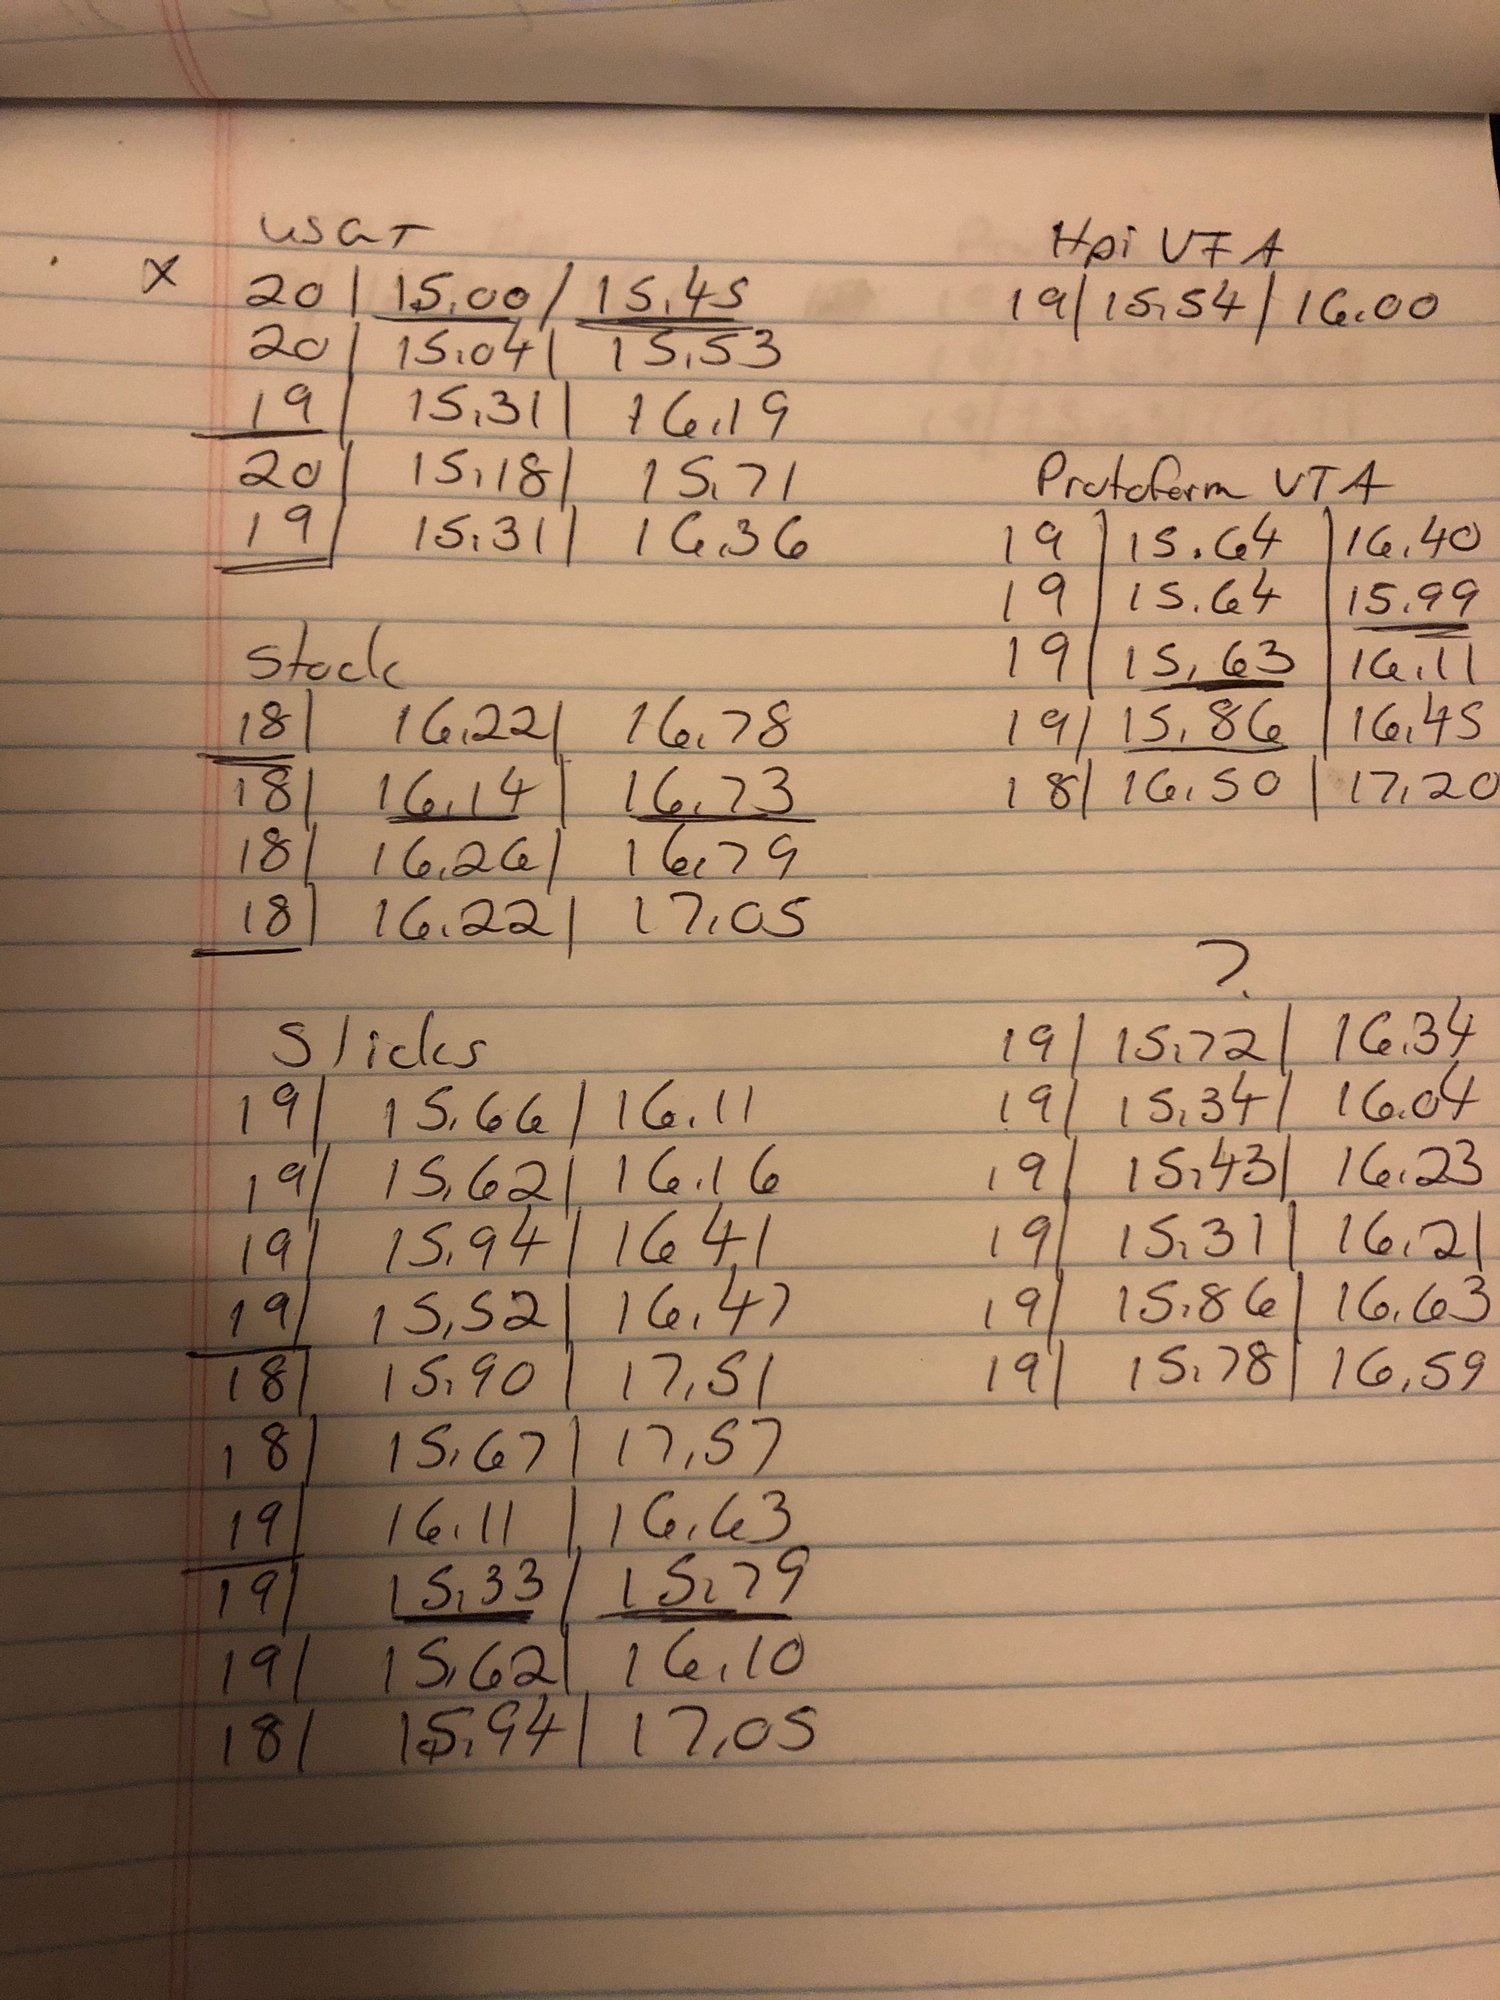 USGT
X 20 | 15.00 / 15.45
20 | 15.04 | 15.53
19 | 15.31 | 16.19
20 | 15.18 | 15.71
19 | 15.31 | 16.36
Stock
18 | 16.22 | 16.78
18 | 16.14 | 16.73
18 | 16.26 | 16.79
18 | 16.22 | 17.05
Slicks
19 | 15.66 | 16.11
19 | 15.62 | 16.16
19 | 15.94 | 16 41
19 | 15.52 | 16.47
18 | 15.90 | 17.51
18 | 15.67 | 17.57
19 | 16.11 | 16.63
19 | 15.33 / 15.79
19 | 15.62 | 16.10
18 | 15.94 | 17.05
Hpi VTA
19 / 15.54 / 16.00
Protoform VTA
19 | 15.64 | 16.40
19 | 15.64 | 15.99
19 | 15.63 | 16.11
19 | 15.86 | 16.45
18 | 16.50 | 17.20
?
19 | 15.72 | 16.34
19 | 15.34 | 16.04
19 | 15.43 | 16.23
19 | 15.31 | 16.21
19 | 15.86 | 16.63
19 | 15.78 | 16.59